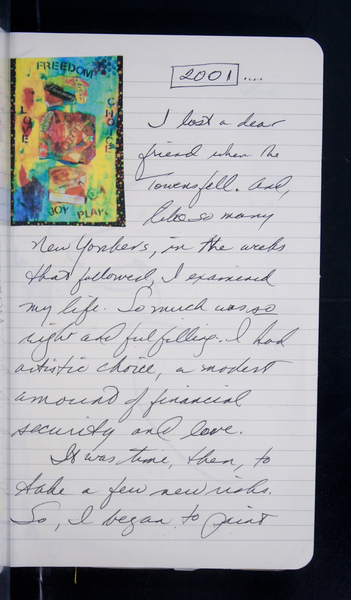 FREEDOM
LOVE
CHOICE
JOY PLAY
2001....
I lost a dear
friend when the
Towers fell. And,
like so many
New Yorkers, in the weeks
that followed, I examined
my life. So much was so
right and fulfilling. I had
artistic choice, a modest
amount of financial
security and love.
It was time, then, to
take a few new risks.
So, I began to paint